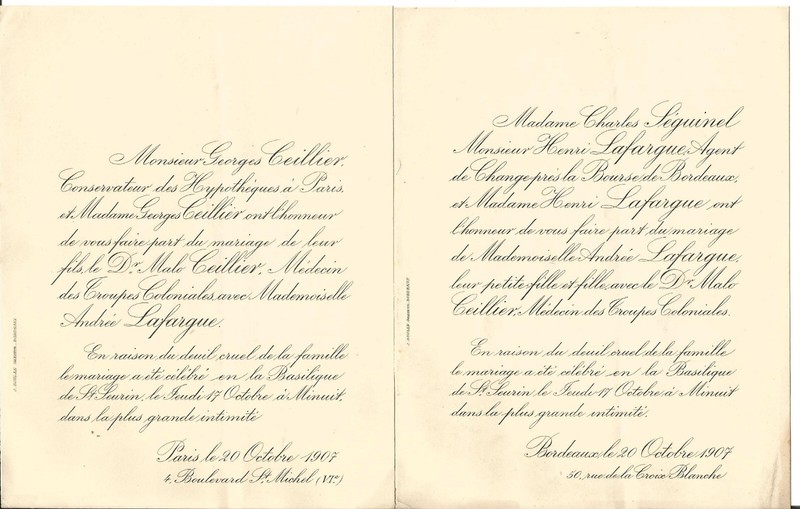 Monsieur Georges Ceillier,
Conservateur des Hypothèques à Paris,
et Madame Georges Ceillier ont l'honneur
de vous faire part du mariage de leur
fils, le Dr. Malo Ceillier, Médecin
des Troupes Coloniales, avec Mademoiselle
Andrée Lafargue.
En raison du deuil cruel de la famille
le mariage a été célébré en la Basilique
de St. Seurin, le Jeudi 17 Octobre à Minuit,
dans la plus grande intimité
Paris, le 20 Octobre 1907
4, Boulevard St. Michel (VIe)
Madame Charles Séguinel
Monsieur Henri Lafargue, Agent
de Change près la Bourse de Bordeaux,
et Madame Henri Lafargue, ont
l'honneur de vous faire part du mariage
de Mademoiselle Andrée Lafargue,
leur petite-fille et fille, avec le Dr. Malo
Ceillier, Médecin des Troupes Coloniales.
En raison du deuil cruel de la famille
le mariage a été célébré en la Basilique
de St. Seurin, le Jeudi 17 Octobre à Minuit
dans la plus grande intimité.
Bordeaux, le 20 Octobre 1907
50, rue de la Croix Blanche